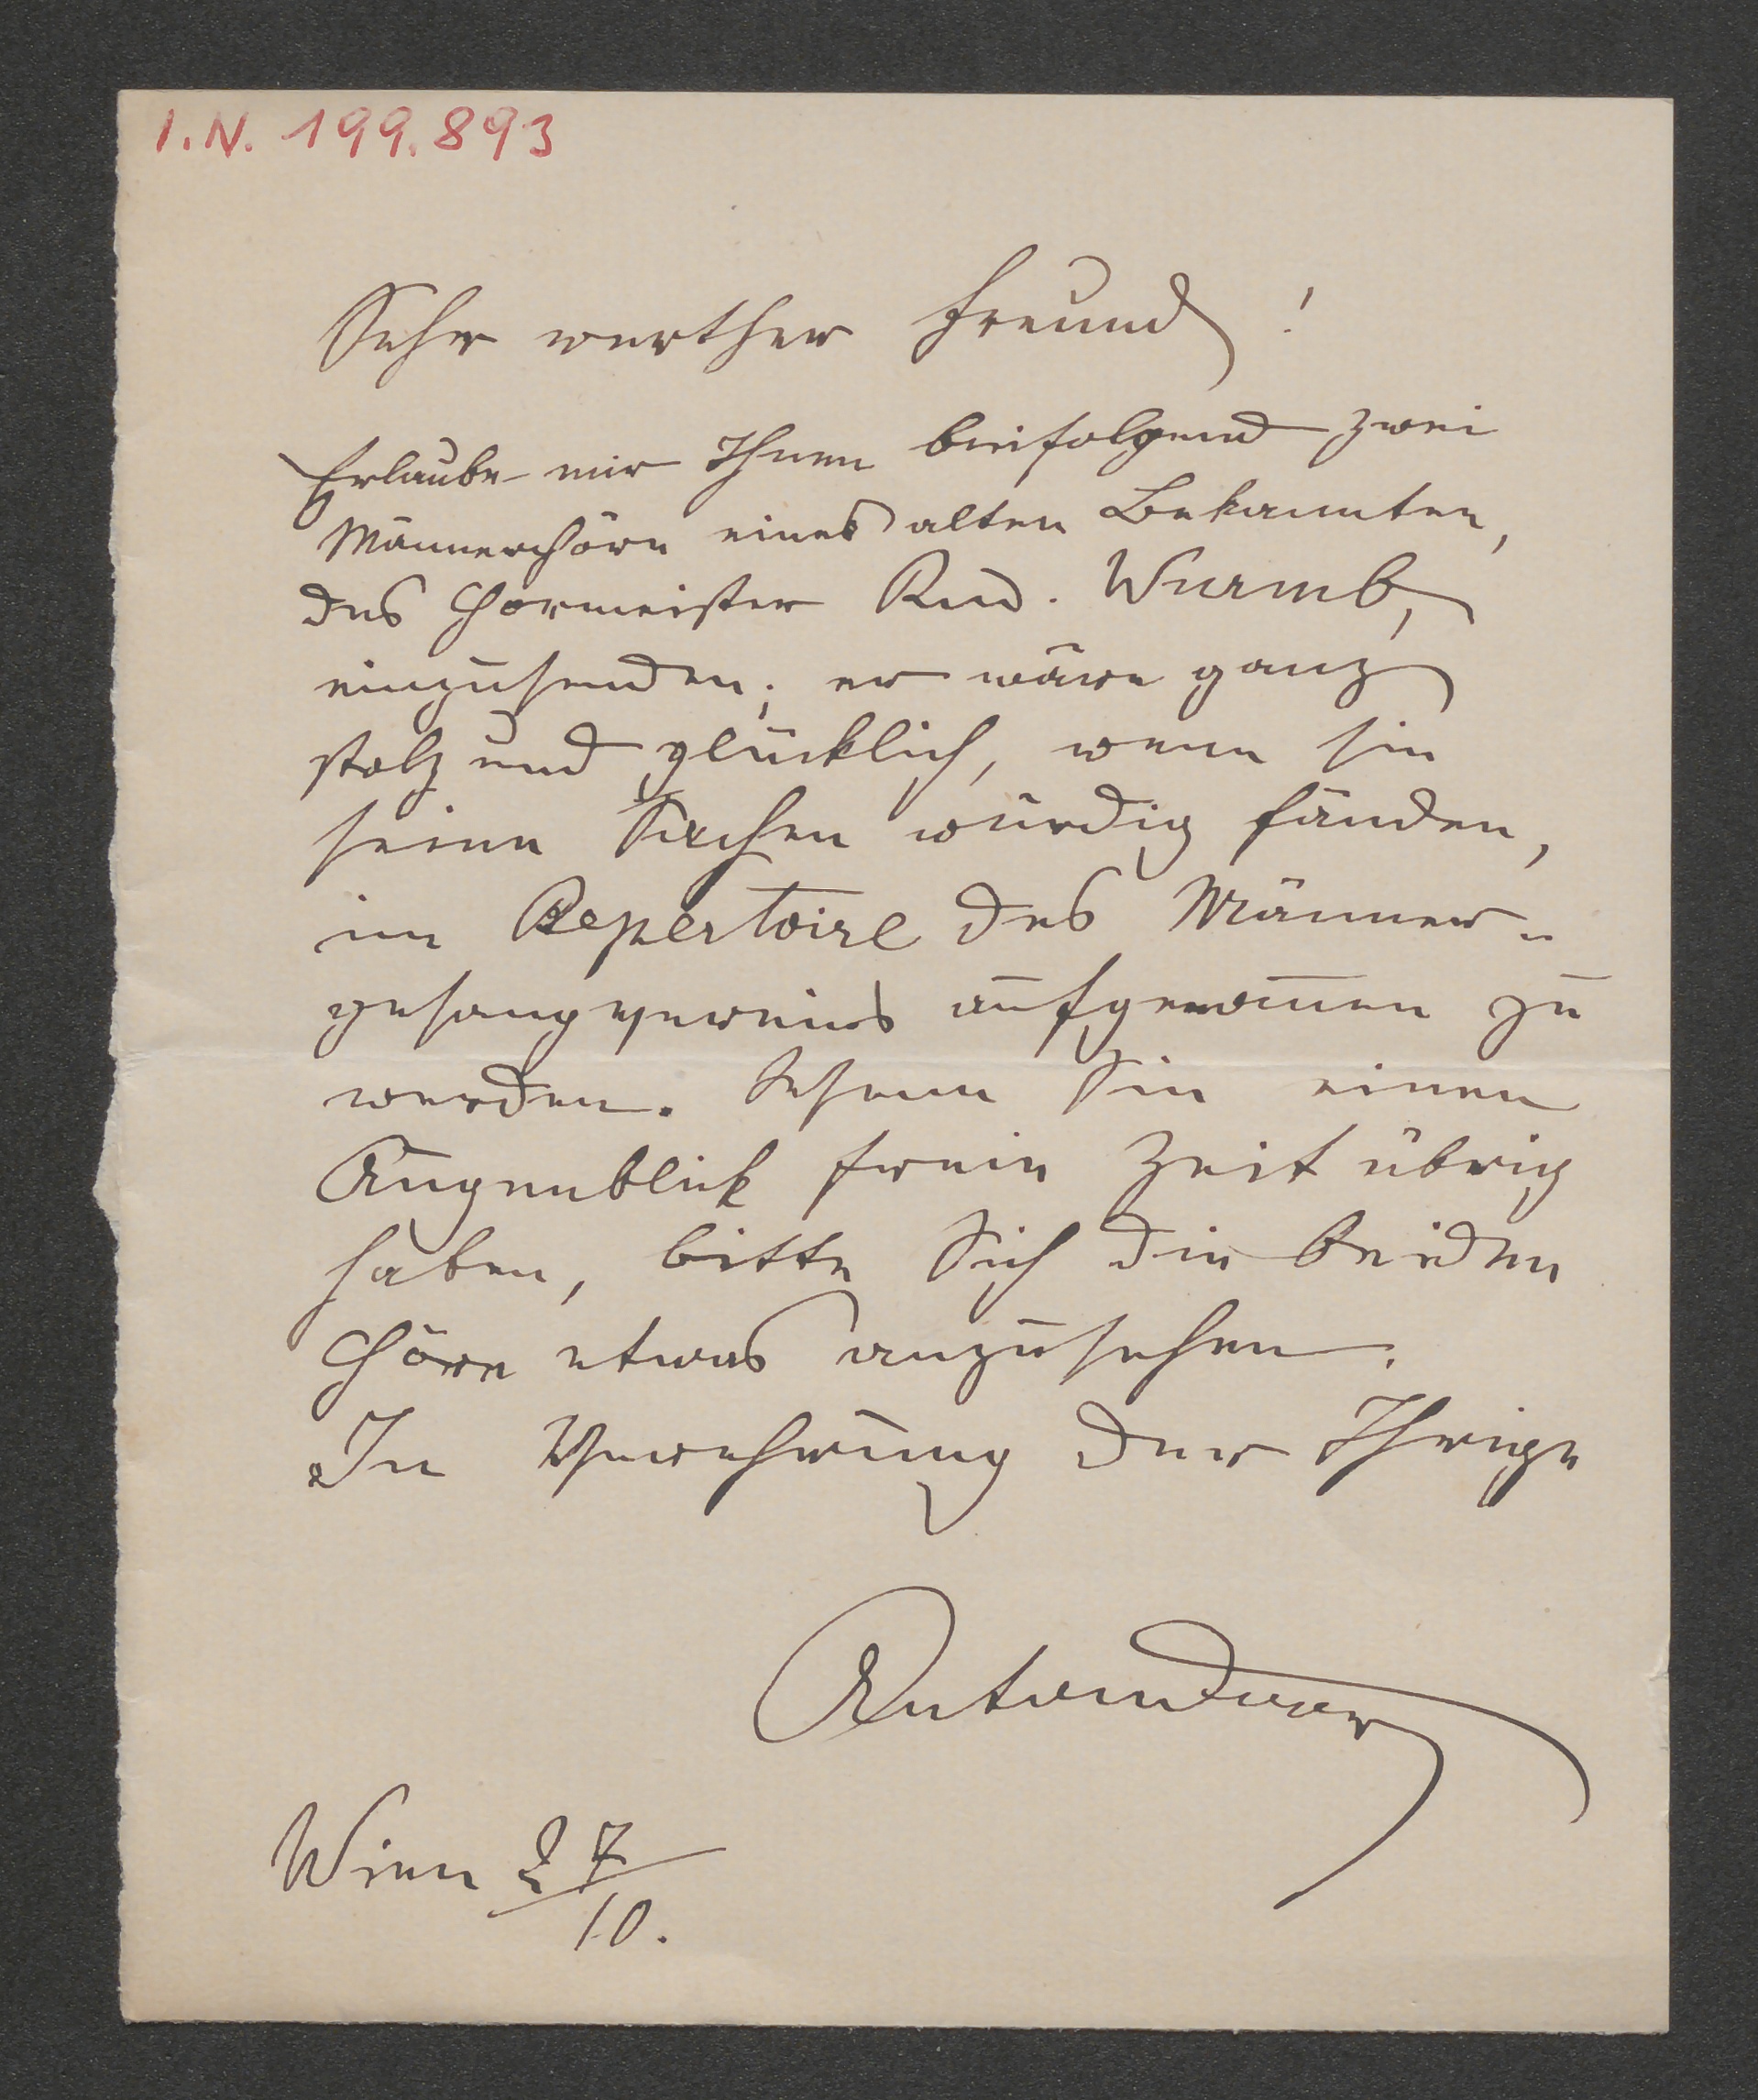 I.N. 199.893
Sehr werther Freund!
Erlaube mir Ihnen beifolgend zwei
Männerchöre eines alten Bekannten,
des Chormeister Rud. Wurmb,
einzusenden; er wäre ganz
stolz und glücklich, wenn sie
seine Sachen würdig fänden,
im Repertoire des Männer-
gesangvereins aufgenom̄en zu
werden. Wenn Sie einen
Augenblick freie Zeit übrig
haben, bitte Sich die beiden
Chöre etwas anzusehen.
In Verehrung der Ihrige
Wien 27/10.